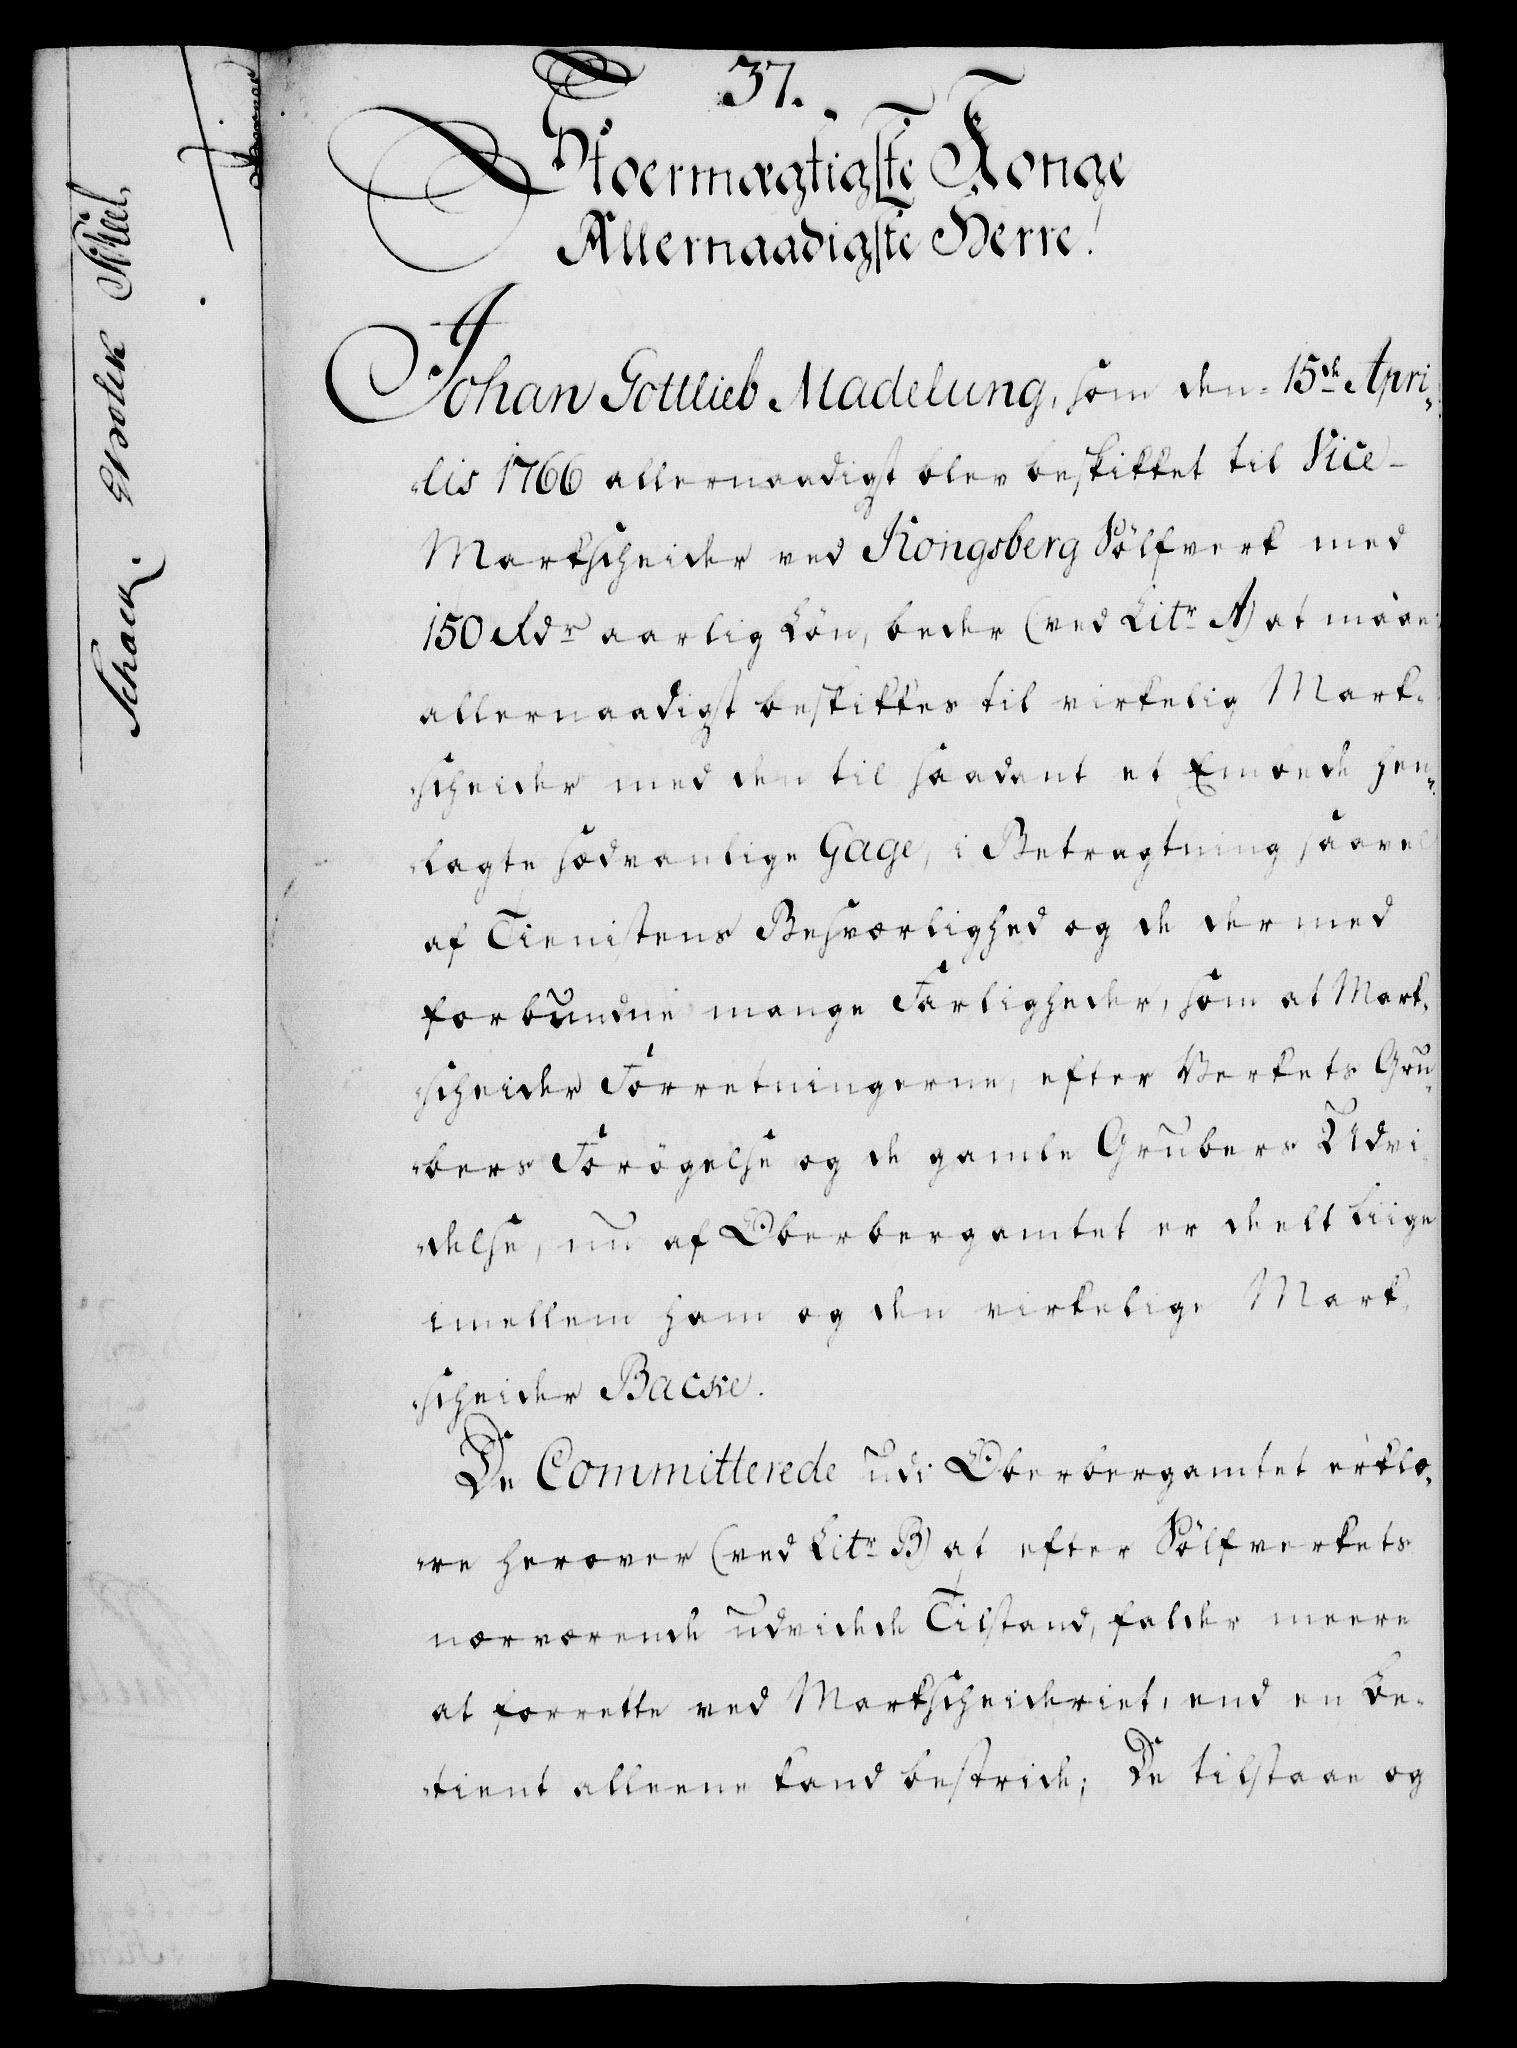 37.
Stoermægtigste Konge
Allernaadigste Herre!
Johan Gottlieb Madelung, som den 15de Apri„
„lis 1766 allernaadigst blev beskikket til Vice-
Markscheider ved Kongsberg Sölfverk med
150 Rdr aarlig Lön, beder (ved Litr A) at maae
allernaadigst beskikkes til virkelig Mark„
„scheider med den til saadant et Embede hen„
„lagte sædvanlige Gage, i Betragtning saavel
af Tienistens Besværlighed og de dermed
forbundne mange Farligheder, som at Mark„
„scheider Forretningerne, efter Verkets Gru„
„bers Forögelse og de gamle Grubers Udvi
„delse, nu af Oberbergamtet er deelt liige
imellem ham og den virkelige Mark„
„scheider Backe.
De Committerede udi Oberbergamtet erklæ„
„re herover (ved Litr B) at efter Sölfverkets
nærværende udvidede Tilstand, falder meere
at forrette ved Markscheideriet, end en Be„
„tient alleene kand bestride; De tilstaae og
Schack.
Skeel